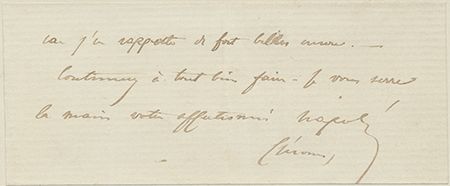 car j'en rapporte de fort belles encore. —
Continuez à tout bien faire – Je vous serre
la main votre affectionné Napol
(Jérome)